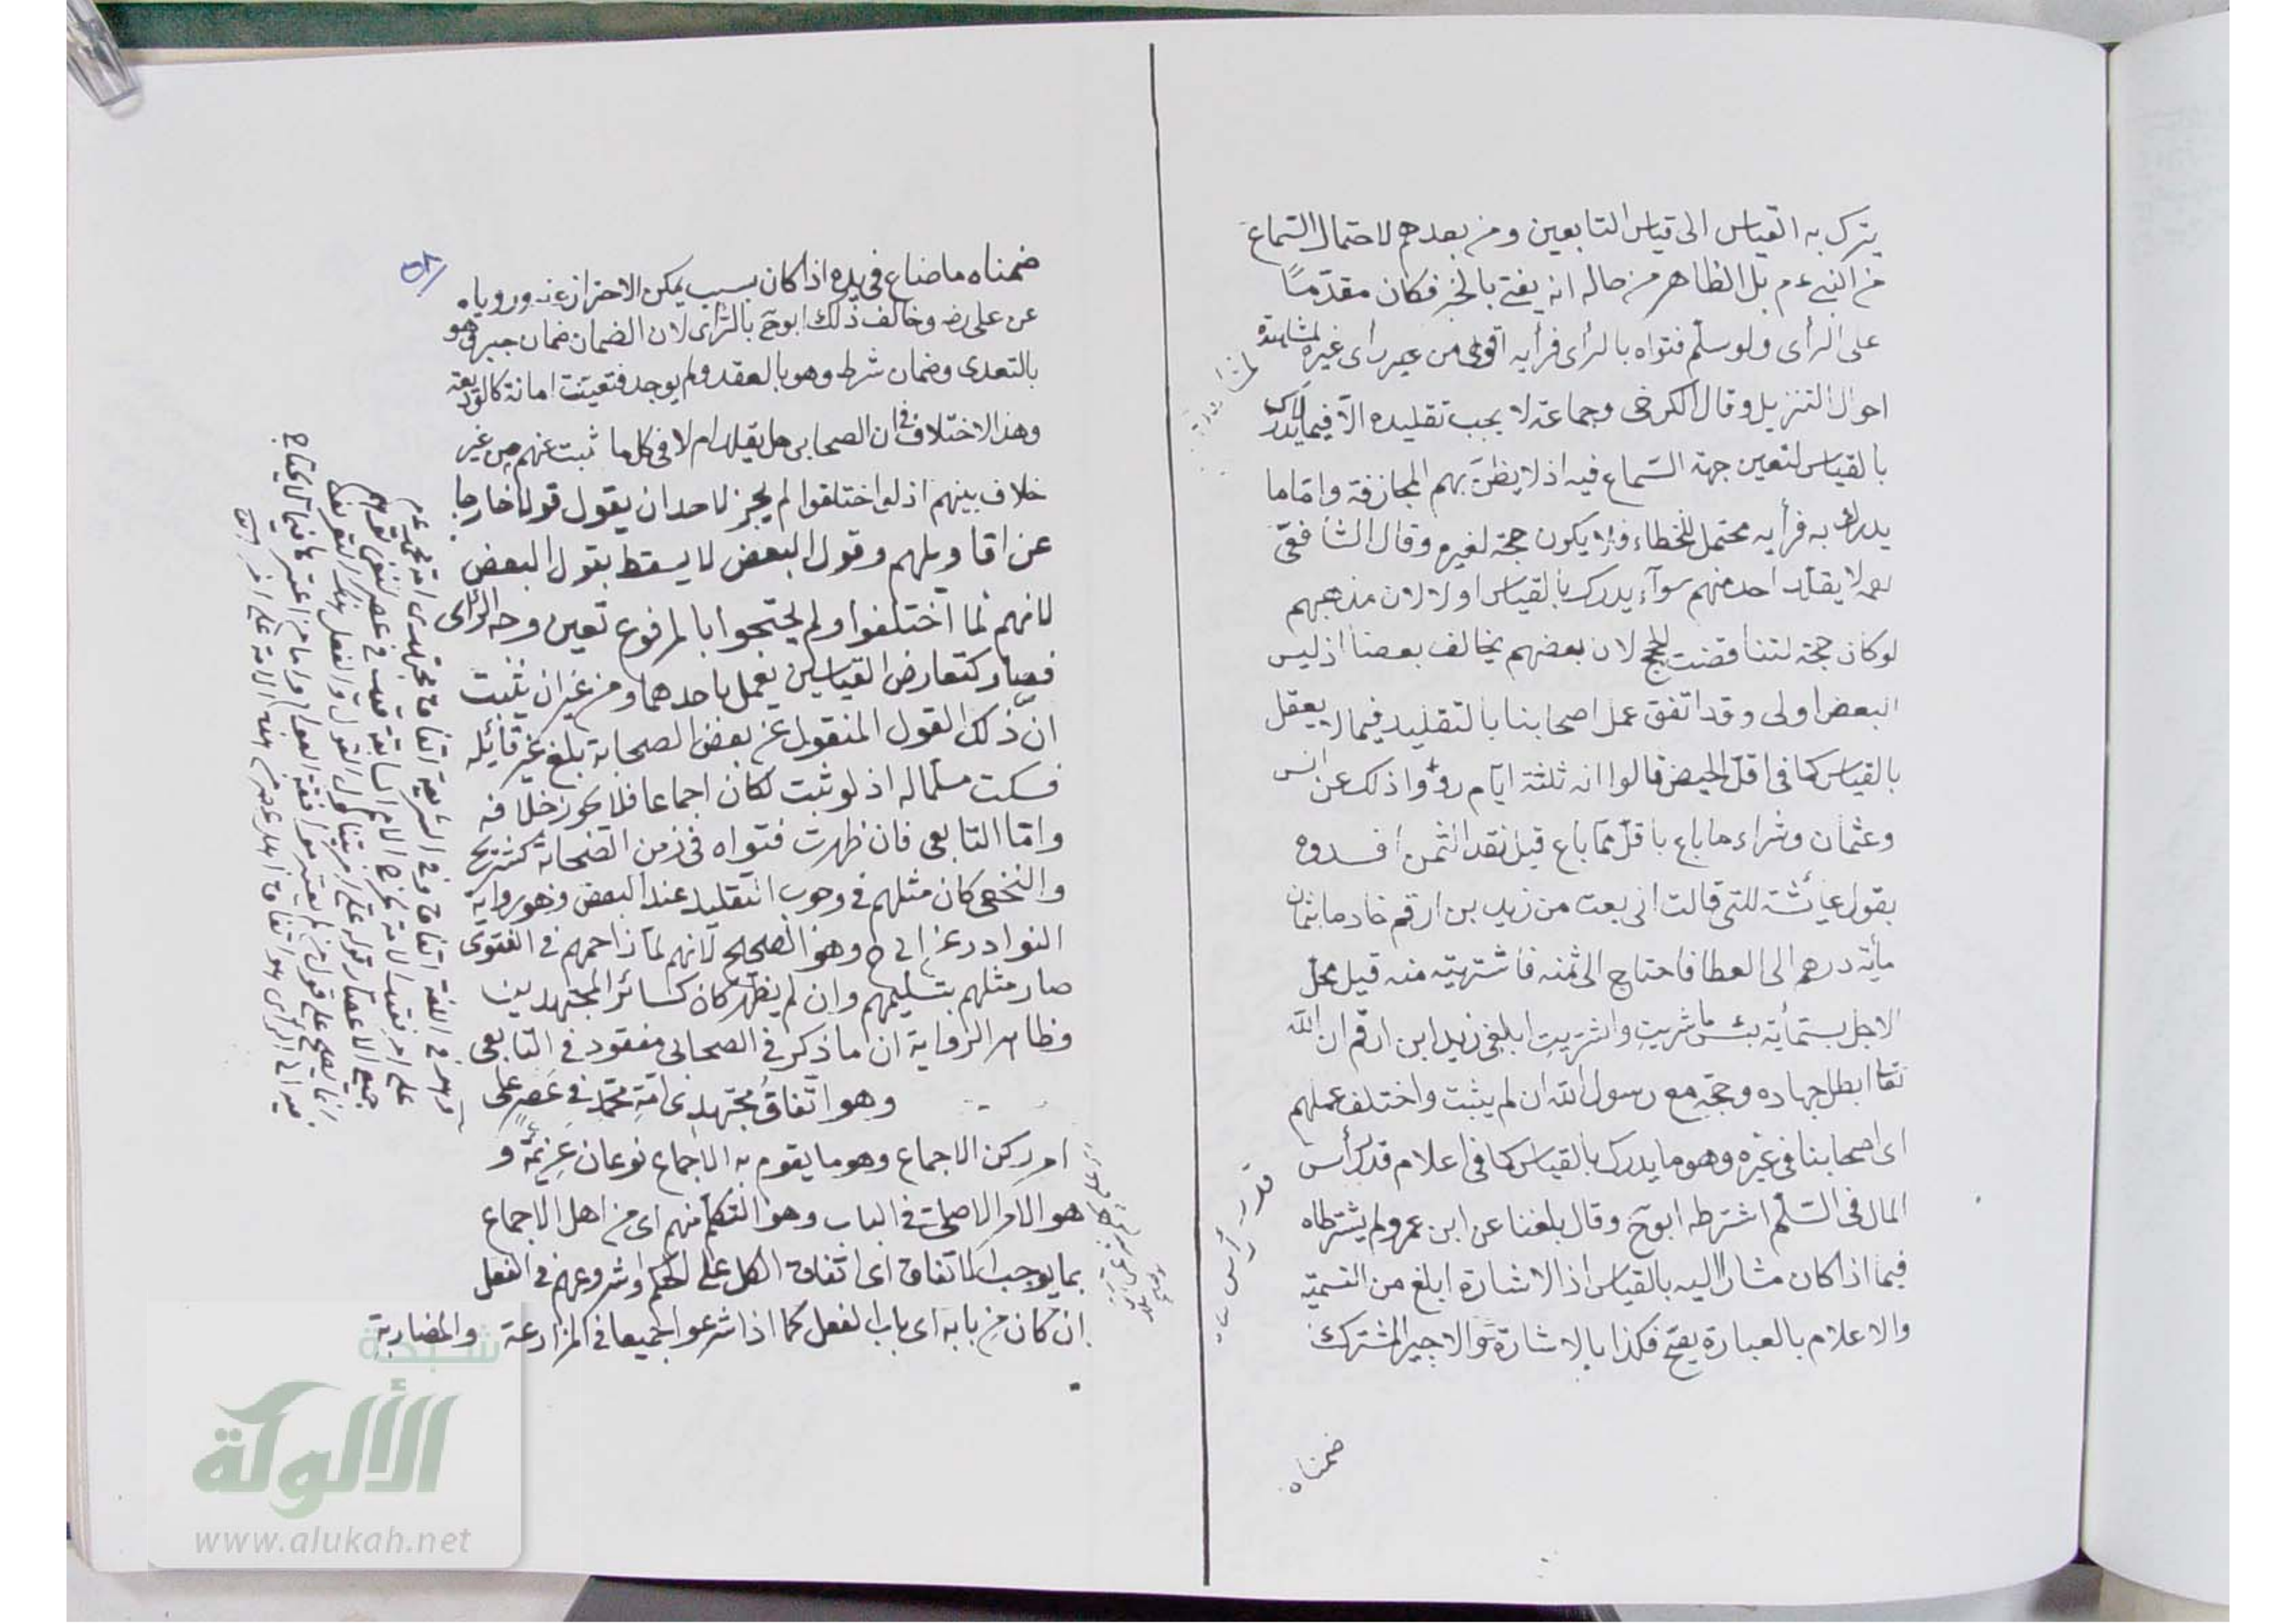 يترك به القياس الى قياس التابعين ومن بعدهم لاحتمال السماع
من النبي ءم بل الظاهر من حاله انه يفتى بالخبر فكان مقدّمًا
على الرأى ولو سلّم فتواه بالرأى فرأيه اقوى من غير رأى غيره لمشاهدة
احوال التنزيل وقال الكرخى وجماعة لا يجب تقليده الّا فيما لا يدرك
بالقياس لتعين جهة السماع فيه اذ لا يظنّ بهم المجازفة واما ما
يدرك به فرأيه محتمل للخطاء فلا يكون حجة لغيره وقال الشافعى
لا يقلّد احد منهم سوآء يدرك بالقياس اولا لان مذهبهم
لو كان حجة لتناقضت الحجج لان بعضهم يخالف بعضنا اذ ليس
البعض اولى وقد اتفق عمل اصحابنا بالتقليد فيما لا يعقل
بالقياس كما فى اقلّ الحيض قالوا انه ثلثة ايّام رووا ذلك عن انس
وعثمان وشراء ما باع باقلّ ممّا باع قبل نقد الثمن افسدوه
بقول عائشة للتى قالت انى بعت من زيد بن ارقم خادما بثمان
مأية درهم الى العطا فاحتاج الى ثمنه فاشتريته منه قبل محلّ
الاجل بستمأية بئس ما شريتِ واشتريتِ ابلغى زيد ابن ارقم ان الله
تعالى ابطل جهاده وحجّه مع رسول الله ان لم يثبت واختلف عملهم
اى اصحابنا فى غيره وهو ما يدرك بالقياس كما فى اعلام قدر رأس
المال فى السّلم اشترطه ابوح وقال بلغنا عن ابن عمر ولم يشترطاه
فيما اذا كان مشارا اليه بالقياس اذ الاشارة ابلغ من التسمية
والاعلام بالعبارة يصحّ فكذا بالاشارة والاجير المشترك
قدر رأس
ضمناه
ضمناه ما ضاع فى يده اذا كان بسبب يمكن الاحتراز عنه ورويا
عن على رضه وخالف ذلك ابوح بالرّأى لان الضمان ضمان جبر وهو
بالتعدى وضمان شرط وهو بالعقد ولم يوجد فتعيّنت امانة كالوديعة
وهذا الاختلاف فى ان الصحابى هل يقلد ام لا فى كل ما ثبت عنهم من غير
خلاف بينهم اذ لو اختلفوا لم يجز لاحد ان يقول قولا خارجا
عن اقاويلهم وقول البعض لا يسقط بقول البعض
لانهم لما اختلفوا ولم يحتجوا بالمرفوع تعين وجه الرّأى
فصار كتعارض القياسين يعمل باحدهما ومن غير ان يثبت
انّ ذلك القول المنقول عن بعض الصحابة بلغ غير قائله
فسكت مسلّما له اذ لو ثبت لكان اجماعا فلا يجوز خلافه
وامّا التابعى فان ظهرت فتواه فى زمن الصحابة كشريح
والنخعى كان مثلهم فى وجوب التقليد عند البعض وهو رواية
النوادر عن ابى ح وهو الصحيح لانهم لمّا زاحمهم فى الفتوى
صار مثلهم بتسليمهم وان لم يظهر كان كسائر المجتهدين
وظاهر الرواية ان ما ذكر فى الصحابى مفقود فى التابعى
وهو اتّفاقُ مجتهدى امّةِ محمّدٍ فى عَصرٍ على
امر ركن الاجماع وهو ما يقوم به الاجماع نوعان عزيمَة و
هو الامر الاصلى فى الباب وهو التكلّم منهم اى من اهل الاجماع
بما يوجب الاتفاق اى اتفاق الكل على الحكم او شروعهم فى الفعل
ان كان من بابه اى باب الفعل كما اذا شرعوا جميعا فى المزارعة والمضاربة
شبكة
الألوكة
www.alukah.net